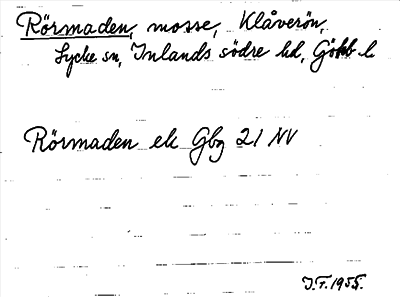 Rörmaden, mosse, Klåverön,
Lycke sn, Inlands södre hd, Götbb l.
Rörmaden ek Gbg 21 NV
J.F. 1955.